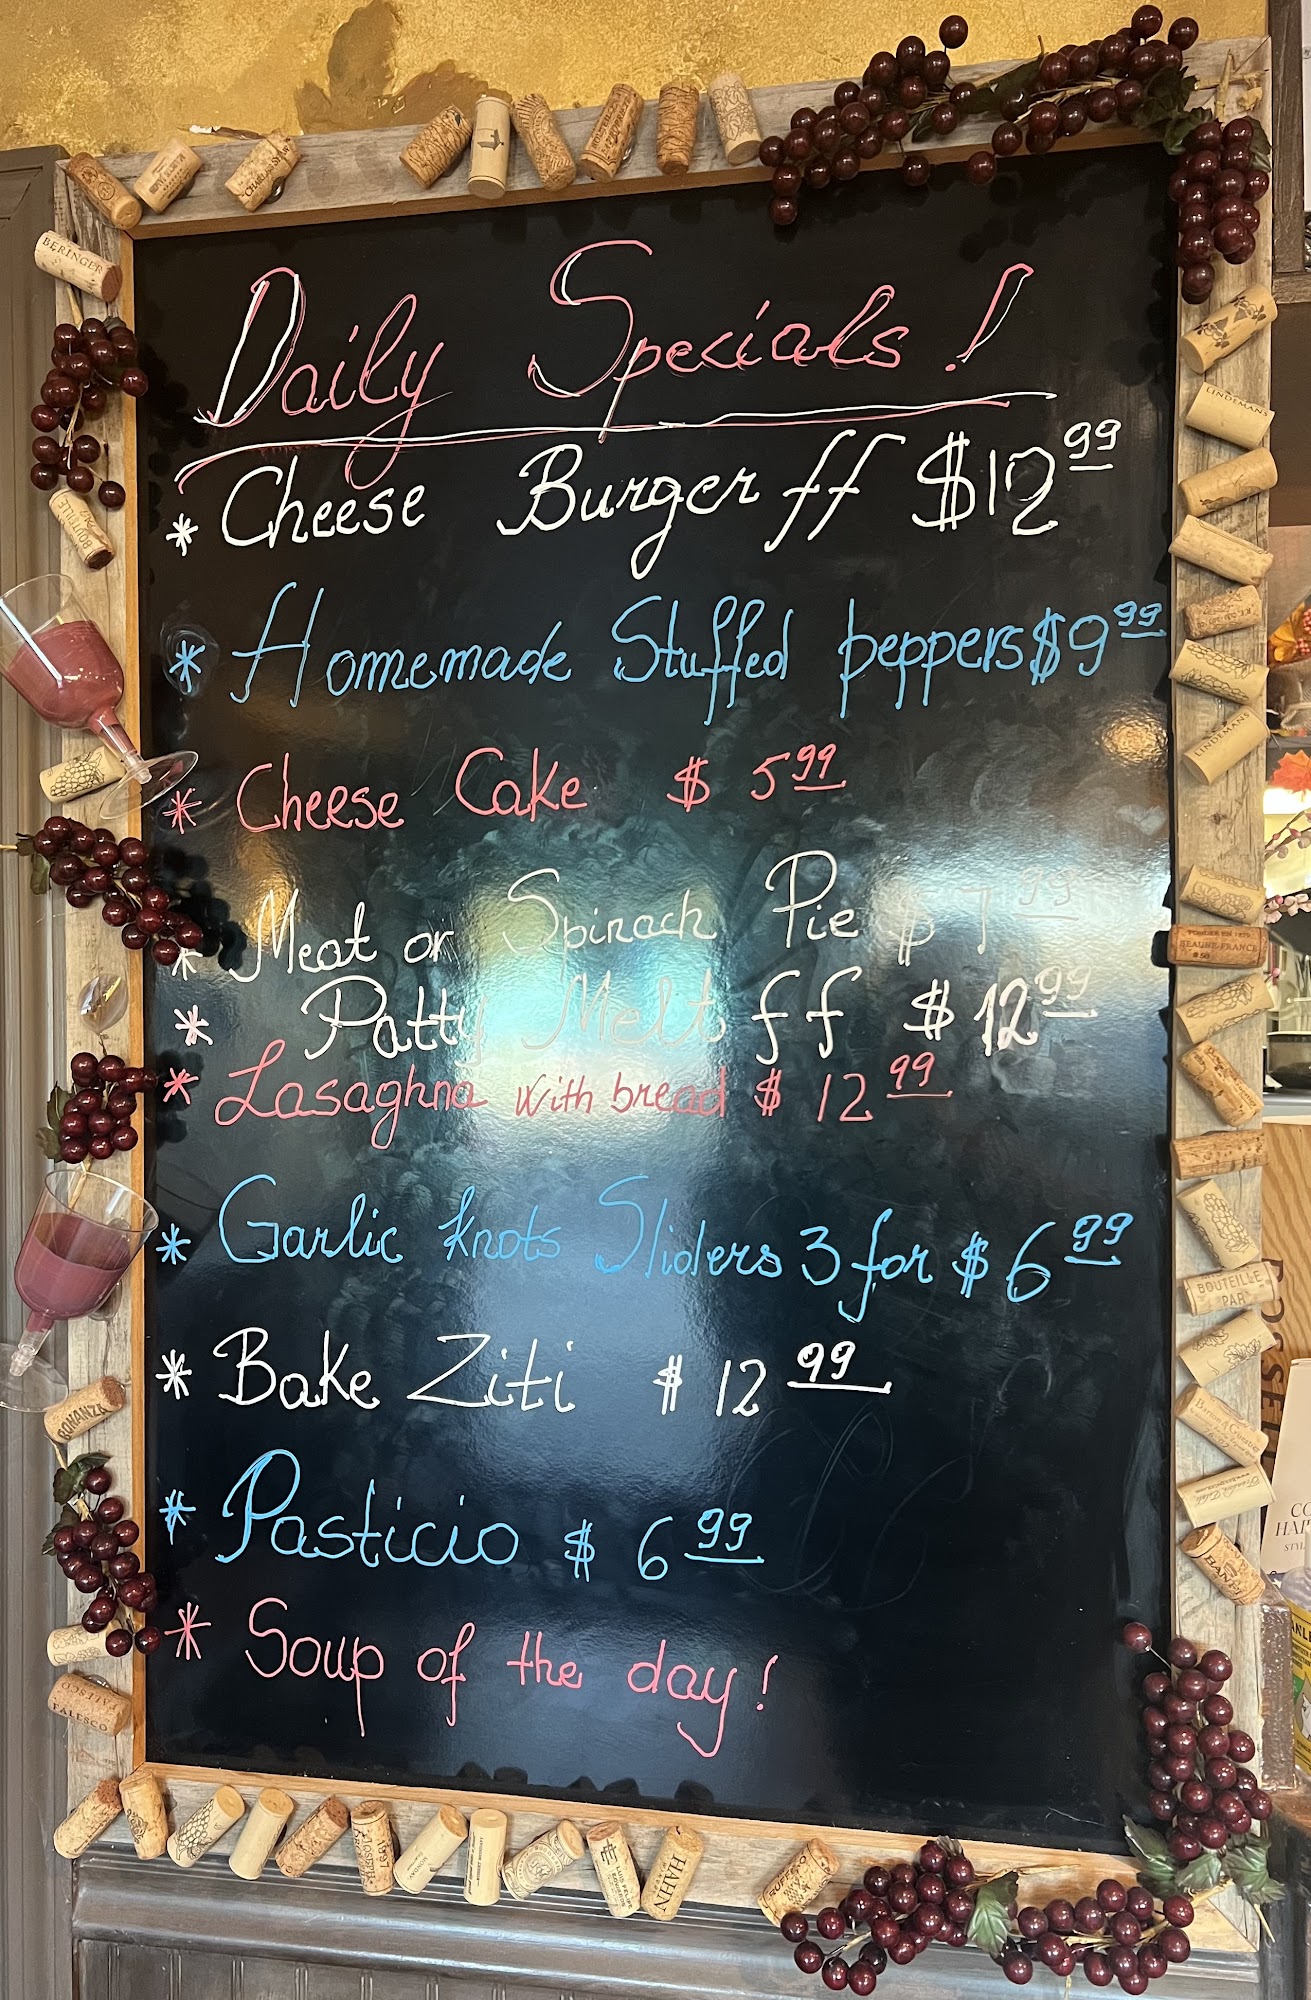 Daily Specials!
* Cheese Burger ff $12.99
* Homemade Stuffed peppers $9.99
* Cheese Cake $ 5.99
* Meat or Spinach Pie $ 7.99
* Patty Melt ff $12.99
* Lasaghna with bread $ 12.99
* Garlic knots Sliders 3 for $ 6.99
* Bake Ziti $ 12.99
* Pasticio $ 6.99
* Soup of the day!
BERINGER
LINDEMANS
LINDEMANS
BEAUNE-FRANCE
BOUTEILLE
PAR
BONANZA
FALESCO
HAHN